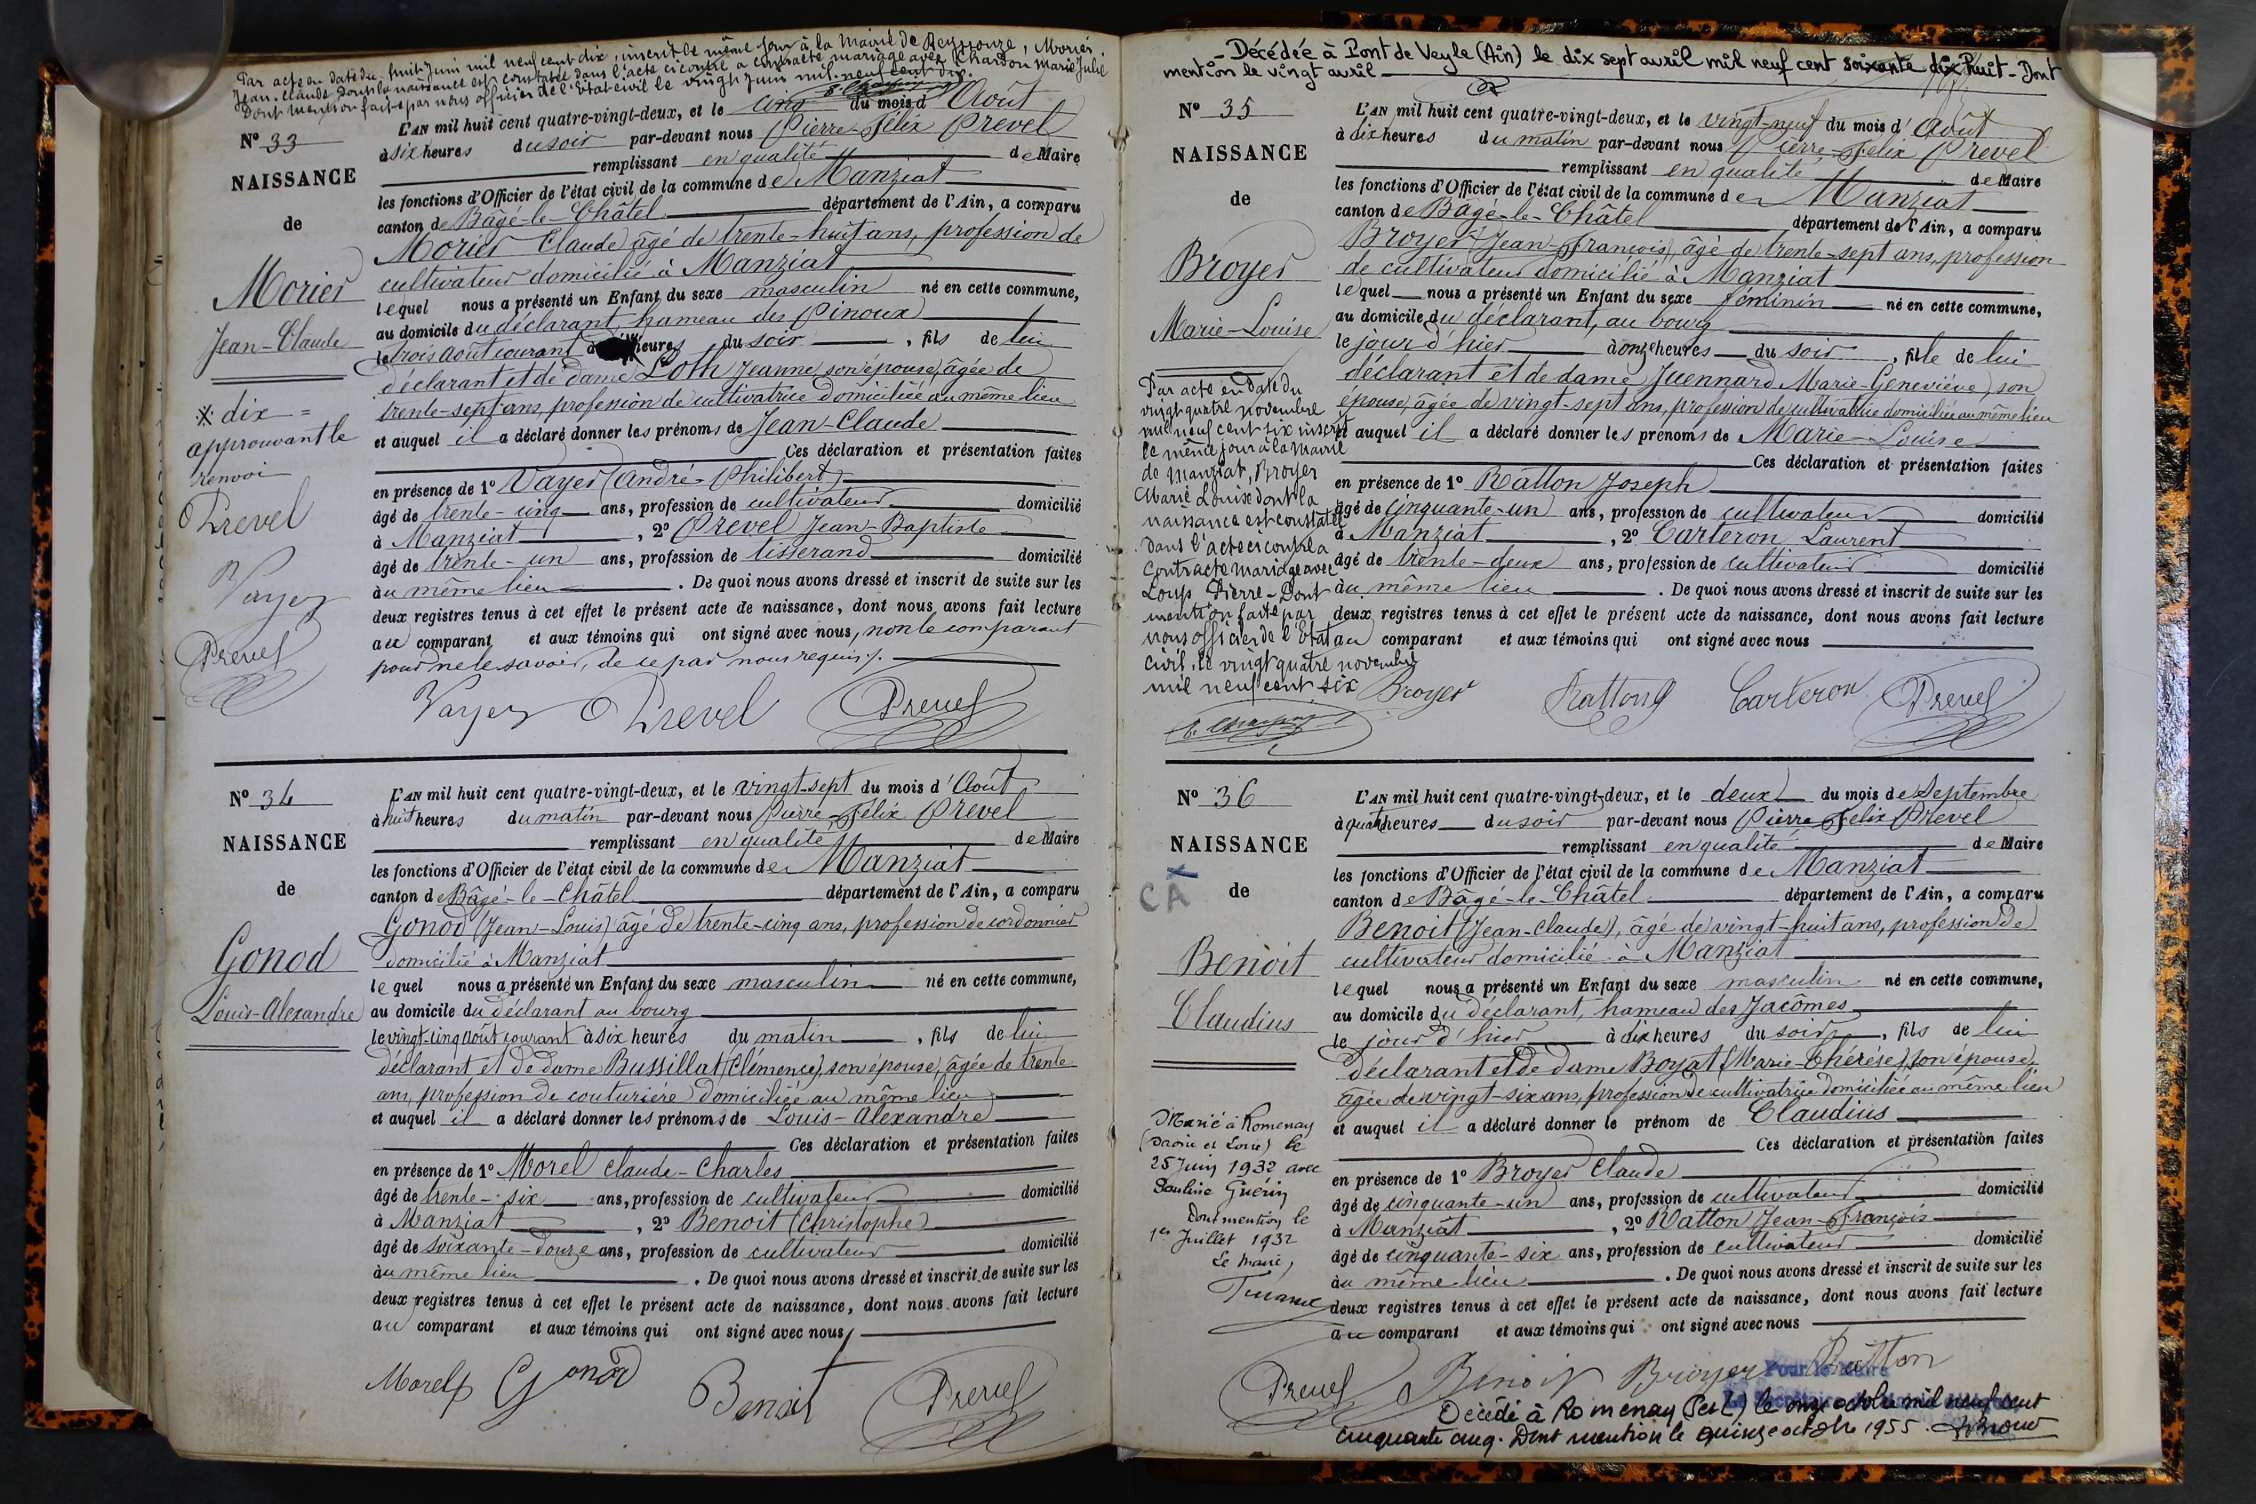 Par acte en date du huit Juin mil neuf cent dix, inscrit le même jour à la Mairie de Reyssouze, Morier
Jean-Claude dont la naissance est constatée dans l'acte ci contre a contracté mariage avec Chardon Marie Julie
Dont mention faite par nous officier de l'Etat civil le vingt Juin mil neuf cent dix.
N° 33
NAISSANCE
de
Morier
Jean-Claude
※ dix =
approuvant le
renvoi
Prevel
Vayer
Prevel
L'AN mil huit cent quatre-vingt-deux, et le cinq du mois d'Août
à six heures du soir par-devant nous Pierre-Félix Prevel
remplissant en qualité de Maire
les fonctions d'Officier de l'état civil de la commune de Manziat
canton de Bâgé-le-Châtel département de l'Ain, a comparu
Morier Claude âgé de trente-huit ans, profession de
cultivateur domicilié à Manziat
lequel nous a présenté un Enfant du sexe masculin né en cette commune,
au domicile du déclarant hameau des Pinoux
le trois août courant à heures du soir, fils de lui
déclarant et de dame Loth Jeanne, son épouse, âgée de
trente-sept ans, profession de cultivatrice domiciliée au même lieu
et auquel il a déclaré donner les prénoms de Jean-Claude
Ces déclaration et présentation faites
en présence de 1° Vayer (André-Philibert)
âgé de trente-cinq ans, profession de cultivateur domicilié
à Manziat, 2° Prevel Jean-Baptiste
âgé de trente-un ans, profession de tisserand domicilié
au même lieu. De quoi nous avons dressé et inscrit de suite sur les
deux registres tenus à cet effet le présent acte de naissance, dont nous avons fait lecture
au comparant et aux témoins qui ont signé avec nous, non le comparant
pour ne le savoir, de ce par nous requis.
Vayer Prevel Prevel
N° 34
NAISSANCE
de
Gonod
Louis-Alexandre
L'AN mil huit cent quatre-vingt-deux, et le vingt-sept du mois d'Août
à huit heures du matin par-devant nous Pierre-Félix Prevel
remplissant en qualité de Maire
les fonctions d'Officier de l'état civil de la commune de Manziat
canton de Bâgé-le-Châtel département de l'Ain, a comparu
Gonod (Jean-Louis) âgé de trente-cinq ans, profession de cordonnier
domicilié à Manziat
lequel nous a présenté un Enfant du sexe masculin né en cette commune,
au domicile du déclarant au bourg
le vingt-cinq août courant à six heures du matin, fils de lui
déclarant et de dame Bussillat (Clémence), son épouse, âgée de trente
ans, profession de couturière domiciliée au même lieu
et auquel il a déclaré donner les prénoms de Louis-Alexandre
Ces déclaration et présentation faites
en présence de 1° Morel Claude-Charles
âgé de trente-six ans, profession de cultivateur domicilié
à Manziat, 2° Benoit (Christophe)
âgé de soixante-douze ans, profession de cultivateur domicilié
au même lieu. De quoi nous avons dressé et inscrit de suite sur les
deux registres tenus à cet effet le présent acte de naissance, dont nous avons fait lecture
au comparant et aux témoins qui ont signé avec nous
Morel Gonod Benoit Prevel
- Décédée à Pont de Veyle (Ain) le dix sept avril mil neuf cent soixante dix huit - Dont
mention le vingt avril
N° 35
NAISSANCE
de
Broyer
Marie-Louise
Par acte en date du
vingt quatre novembre
mil neuf cent six inscrit
le même jour à la Mairie
de Manziat, Broyer
Marie Louise dont la
naissance est constatée
dans l'acte ci contre a
contracté mariage avec
Loup Pierre - Dont
mention faite par
nous officier de l'Etat
civil, le vingt quatre novembre
mil neuf cent six
L'AN mil huit cent quatre-vingt-deux, et le vingt-neuf du mois d'Août
à dix heures du matin par-devant nous Pierre-Félix Prevel
remplissant en qualité de Maire
les fonctions d'Officier de l'état civil de la commune de Manziat
canton de Bâgé-le-Châtel département de l'Ain, a comparu
Broyer (Jean-François) âgé de trente-sept ans, profession
de cultivateur domicilié à Manziat
lequel nous a présenté un Enfant du sexe féminin né en cette commune,
au domicile du déclarant, au bourg
le jour d'hier à onze heures du soir, fille de lui
déclarant et de dame Juennard Marie-Geneviève, son
épouse, âgée de vingt-sept ans, profession de cultivatrice domiciliée au même lieu
et auquel il a déclaré donner les prénoms de Marie-Louise
Ces déclaration et présentation faites
en présence de 1° Ratton Joseph
âgé de cinquante-un ans, profession de cultivateur domicilié
à Manziat, 2° Carteron Laurent
âgé de trente-deux ans, profession de cultivateur domicilié
au même lieu. De quoi nous avons dressé et inscrit de suite sur les
deux registres tenus à cet effet le présent acte de naissance, dont nous avons fait lecture
au comparant et aux témoins qui ont signé avec nous
Broyer Ratton Carteron Prevel
N° 36
NAISSANCE
CA
de
Benoit
Claudius
Marié à Romenay
(Saône et Loire) le
25 Juin 1932 avec
Pauline Guérin
Dont mention le
1er Juillet 1932
Le maire,
L'AN mil huit cent quatre-vingt-deux, et le deux du mois de Septembre
à quatre heures du soir par-devant nous Pierre Félix Prevel
remplissant en qualité de Maire
les fonctions d'Officier de l'état civil de la commune de Manziat
canton de Bâgé-le-Châtel département de l'Ain, a comparu
Benoit (Jean-Claude), âgé de vingt-huit ans, profession de
cultivateur domicilié à Manziat
lequel nous a présenté un Enfant du sexe masculin né en cette commune,
au domicile du déclarant, hameau des Jacômes
le jour d'hier à dix heures du soir, fils de lui
déclarant et de dame Boyat (Marie-Thérèse), son épouse,
âgée de vingt-six ans, profession de cultivatrice domiciliée au même lieu
et auquel il a déclaré donner le prénom de Claudius
Ces déclaration et présentation faites
en présence de 1° Broyer Claude
âgé de cinquante-un ans, profession de cultivateur domicilié
à Manziat, 2° Ratton Jean-François
âgé de cinquante-six ans, profession de cultivateur domicilié
au même lieu. De quoi nous avons dressé et inscrit de suite sur les
deux registres tenus à cet effet le présent acte de naissance, dont nous avons fait lecture
au comparant et aux témoins qui ont signé avec nous
Prevel Benoit Broyer Ratton
Pour le Maire
Décédé à Romenay (S et L) le onze octobre mil neuf cent
cinquante cinq. Dont mention le quinze octobre 1955.